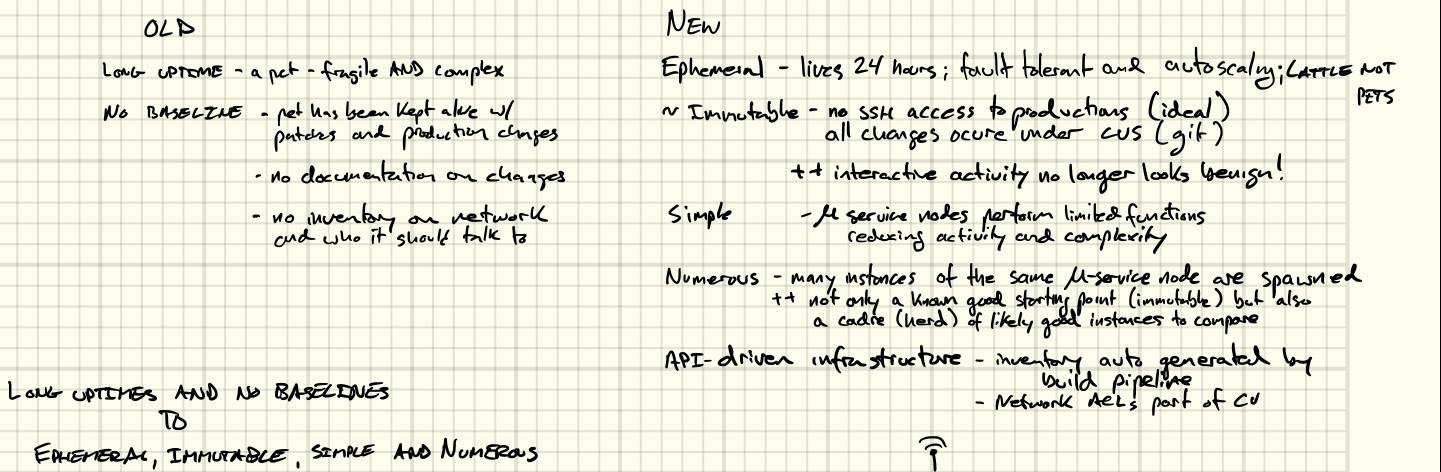 OLD
LONG UPTIME - a pet - fragile AND complex
NO BASELINE - pet has been kept alive w/
patches and production changes
- no documentation on changes
- no inventory on network
and who it should talk to
LONG UPTIMES AND NO BASELINES
TO
EPHEMERAL, IMMUTABLE, SIMPLE AND NUMEROUS
NEW
Ephemeral - lives 24 hours; fault tolerant and autoscalng; CATTLE NOT
PETS
~ Immutable - no SSH access to productions (ideal)
all changes ocure under CVS (git)
++ interactive activity no longer looks benign!
Simple - μ service nodes perform limited functions
reducing activity and complexity
Numerous - many instances of the same μ-service node are spawned
++ not only a known good starting point (immutable) but also
a cadre (herd) of likely good instances to compare
API-driven infrastructure - inventory auto generated by
build pipeline
- Network ACLs part of CV